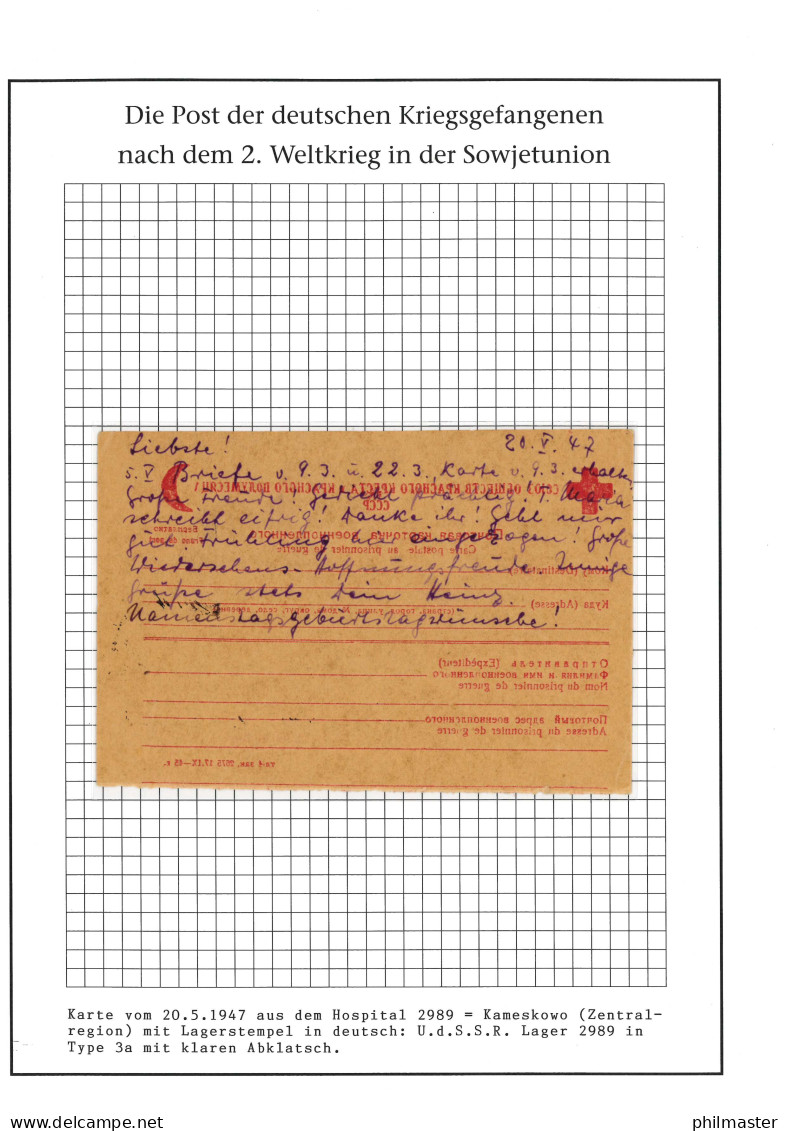 Die Post der deutschen Kriegsgefangenen
nach dem 2. Weltkrieg in der Sowjetunion
Liebste! 20. V. 47
5. V Briefe v. 9. 3. u. 22. 3. Karte v. 9. 3. erhalten
Große Freude!
schreibt eifrig! Danke ihr! Geht mir
gut Frühling hier eingezogen! Große
Wiedersehens-Hoffnungsfreude. Innige
Grüße stets Dein Heinz.
Namenstagsgeburtstagswünsche!
СОЮЗ ОБЩЕСТВ КРАСНОГО КРЕСТА и КРАСНОГО ПОЛУМЕСЯЦА
СССР
Почтовая карточка военнопленного
Carte postale au prisonnier de guerre
Бесплатно
Franc de port
Кому (Destinataire)
Куда (Adresse)
(страна, город, улица, № дома, округ, село, деревня)
Отправитель (Expéditeur)
Фамилия и имя военнопленного
Nom du prisonnier de guerre
Почтовый адрес военнопленного
Adresse du prisonnier de guerre
зак. 2675 17.IX—45 г.
Karte vom 20.5.1947 aus dem Hospital 2989 = Kameskowo (Zentral-
region) mit Lagerstempel in deutsch: U.d.S.S.R. Lager 2989 in
Type 3a mit klaren Abklatsch.
www.delcampe.net
philmaster